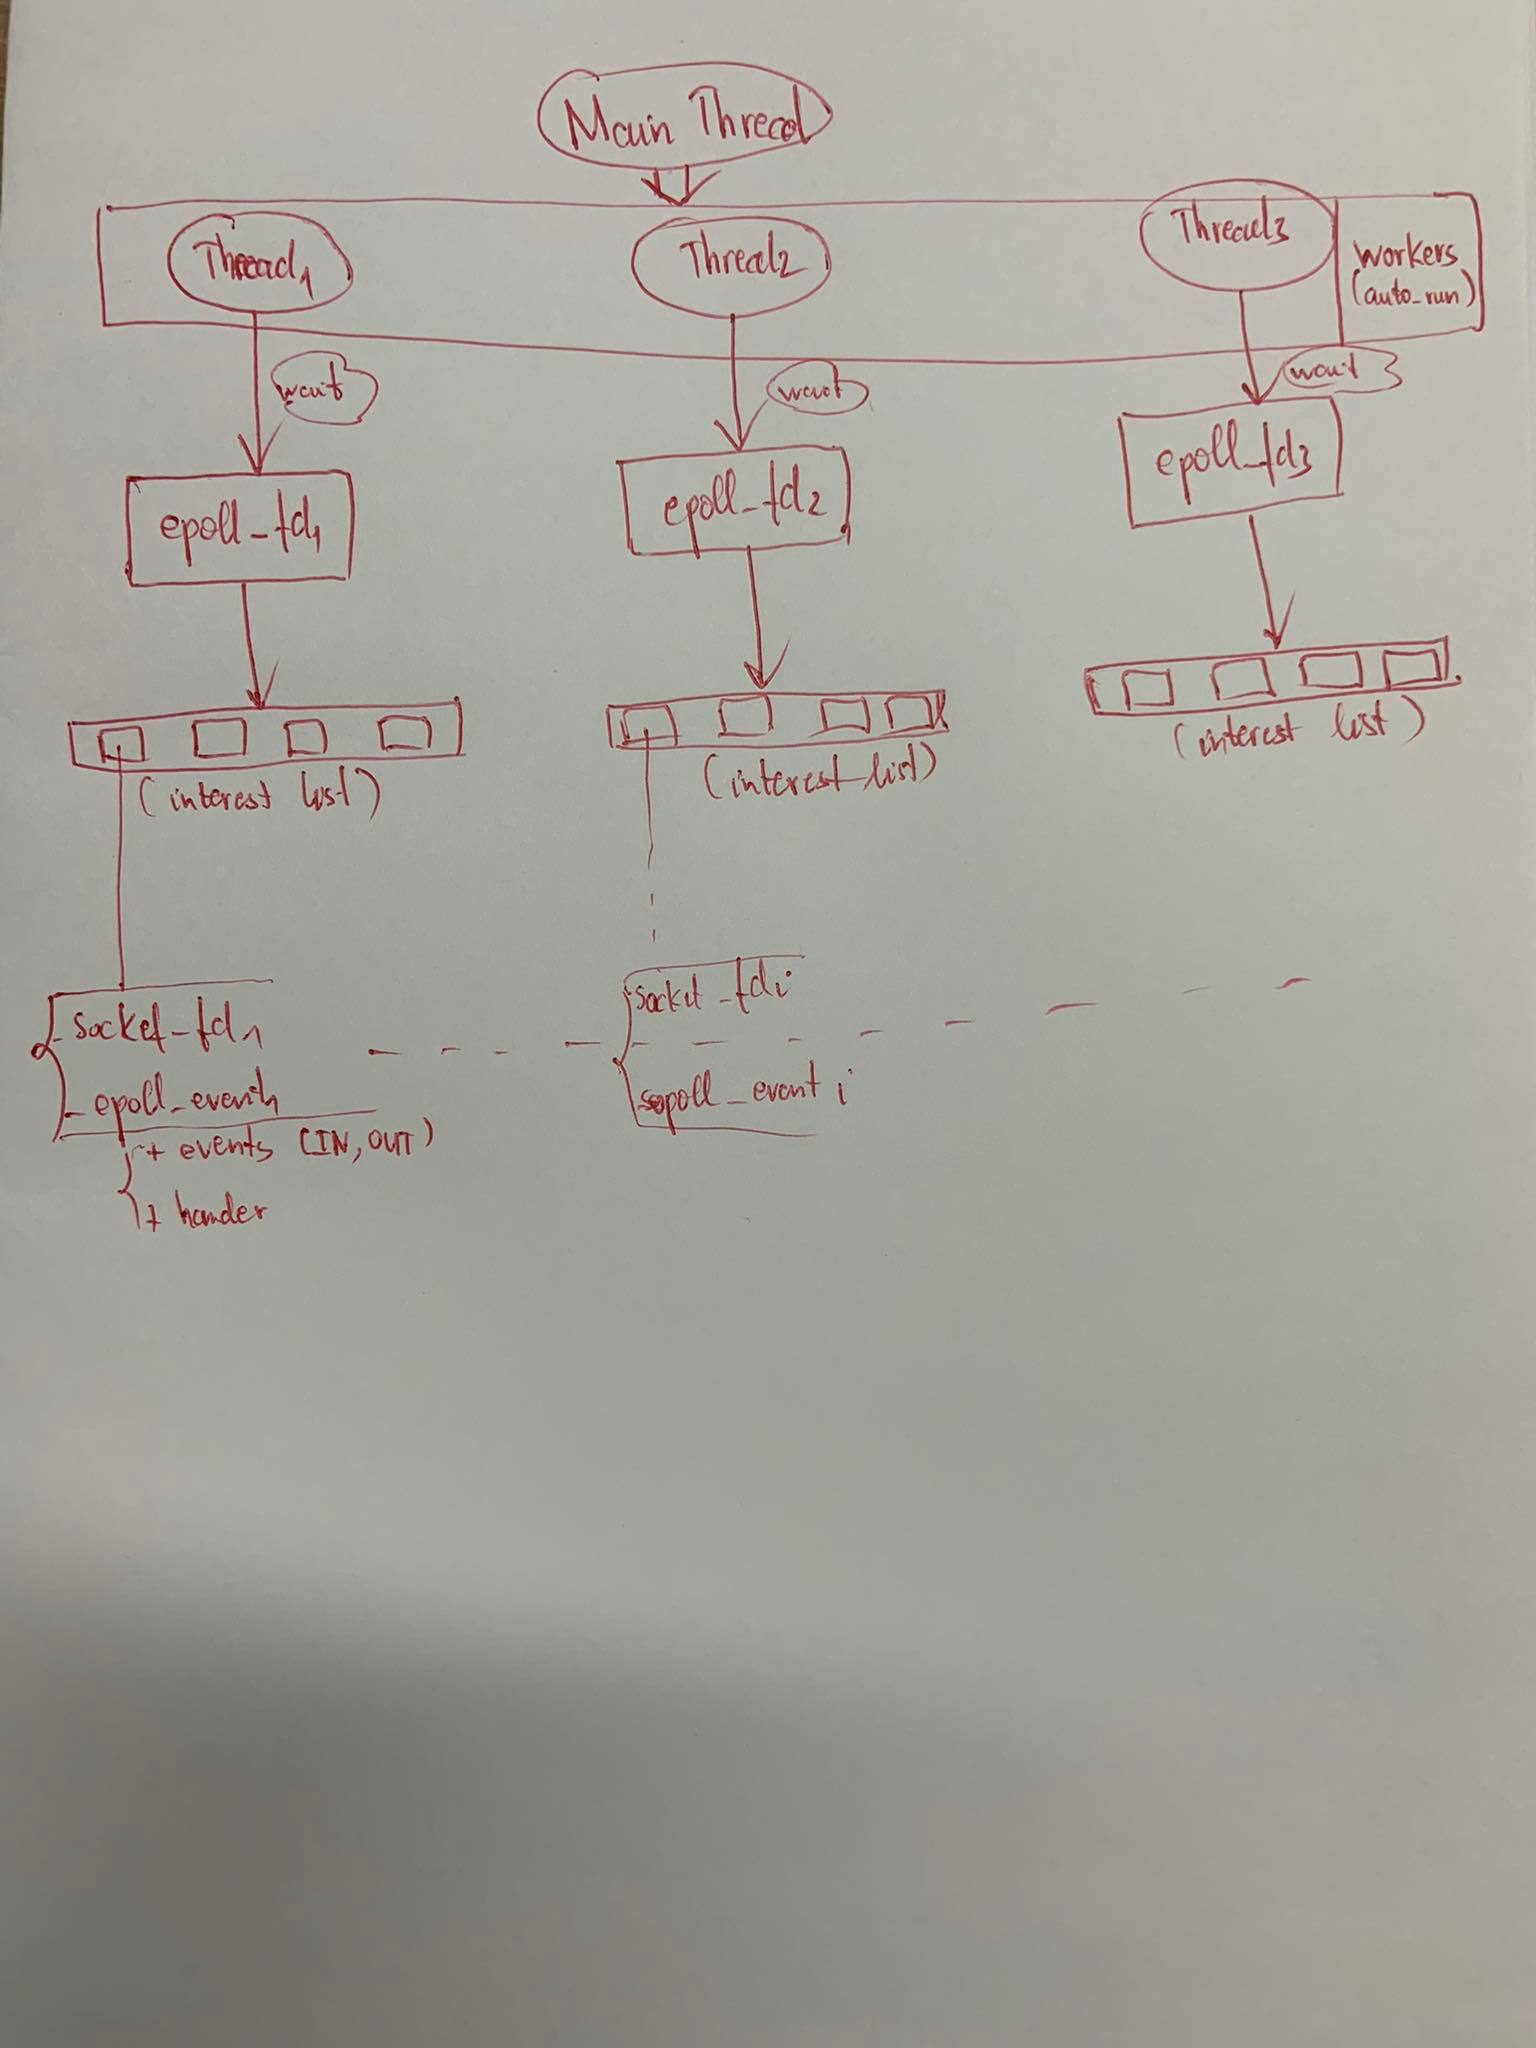 Main Thread
Thread1
Thread2
Thread3
workers
(auto_run)
wait
wait
wait
epoll_fd1
epoll_fd2
epoll_fd3
(interest list)
(interest list)
(interest list)
- socket_fd1
- epoll_event1
+ events (IN, OUT)
+ hander
socket_fdi
epoll_event i